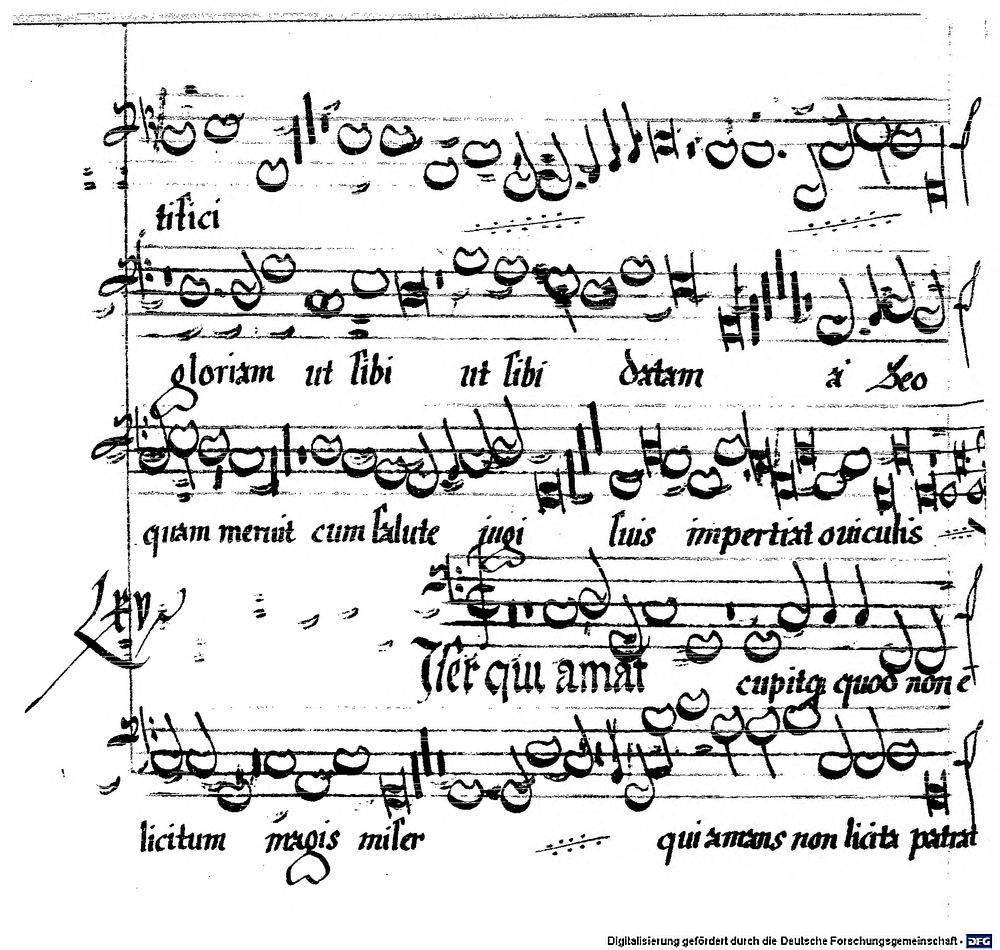 tifici
gloriam ut sibi ut sibi datam a deo
quam meruit cum salute jugi suis impertiat ouiculis
Iser qui amat cupitq quod non e
licitum magis miser qui amans non licita patrat
Digitalisierung gefördert durch die Deutsche Forschungsgemeinschaft - DFG